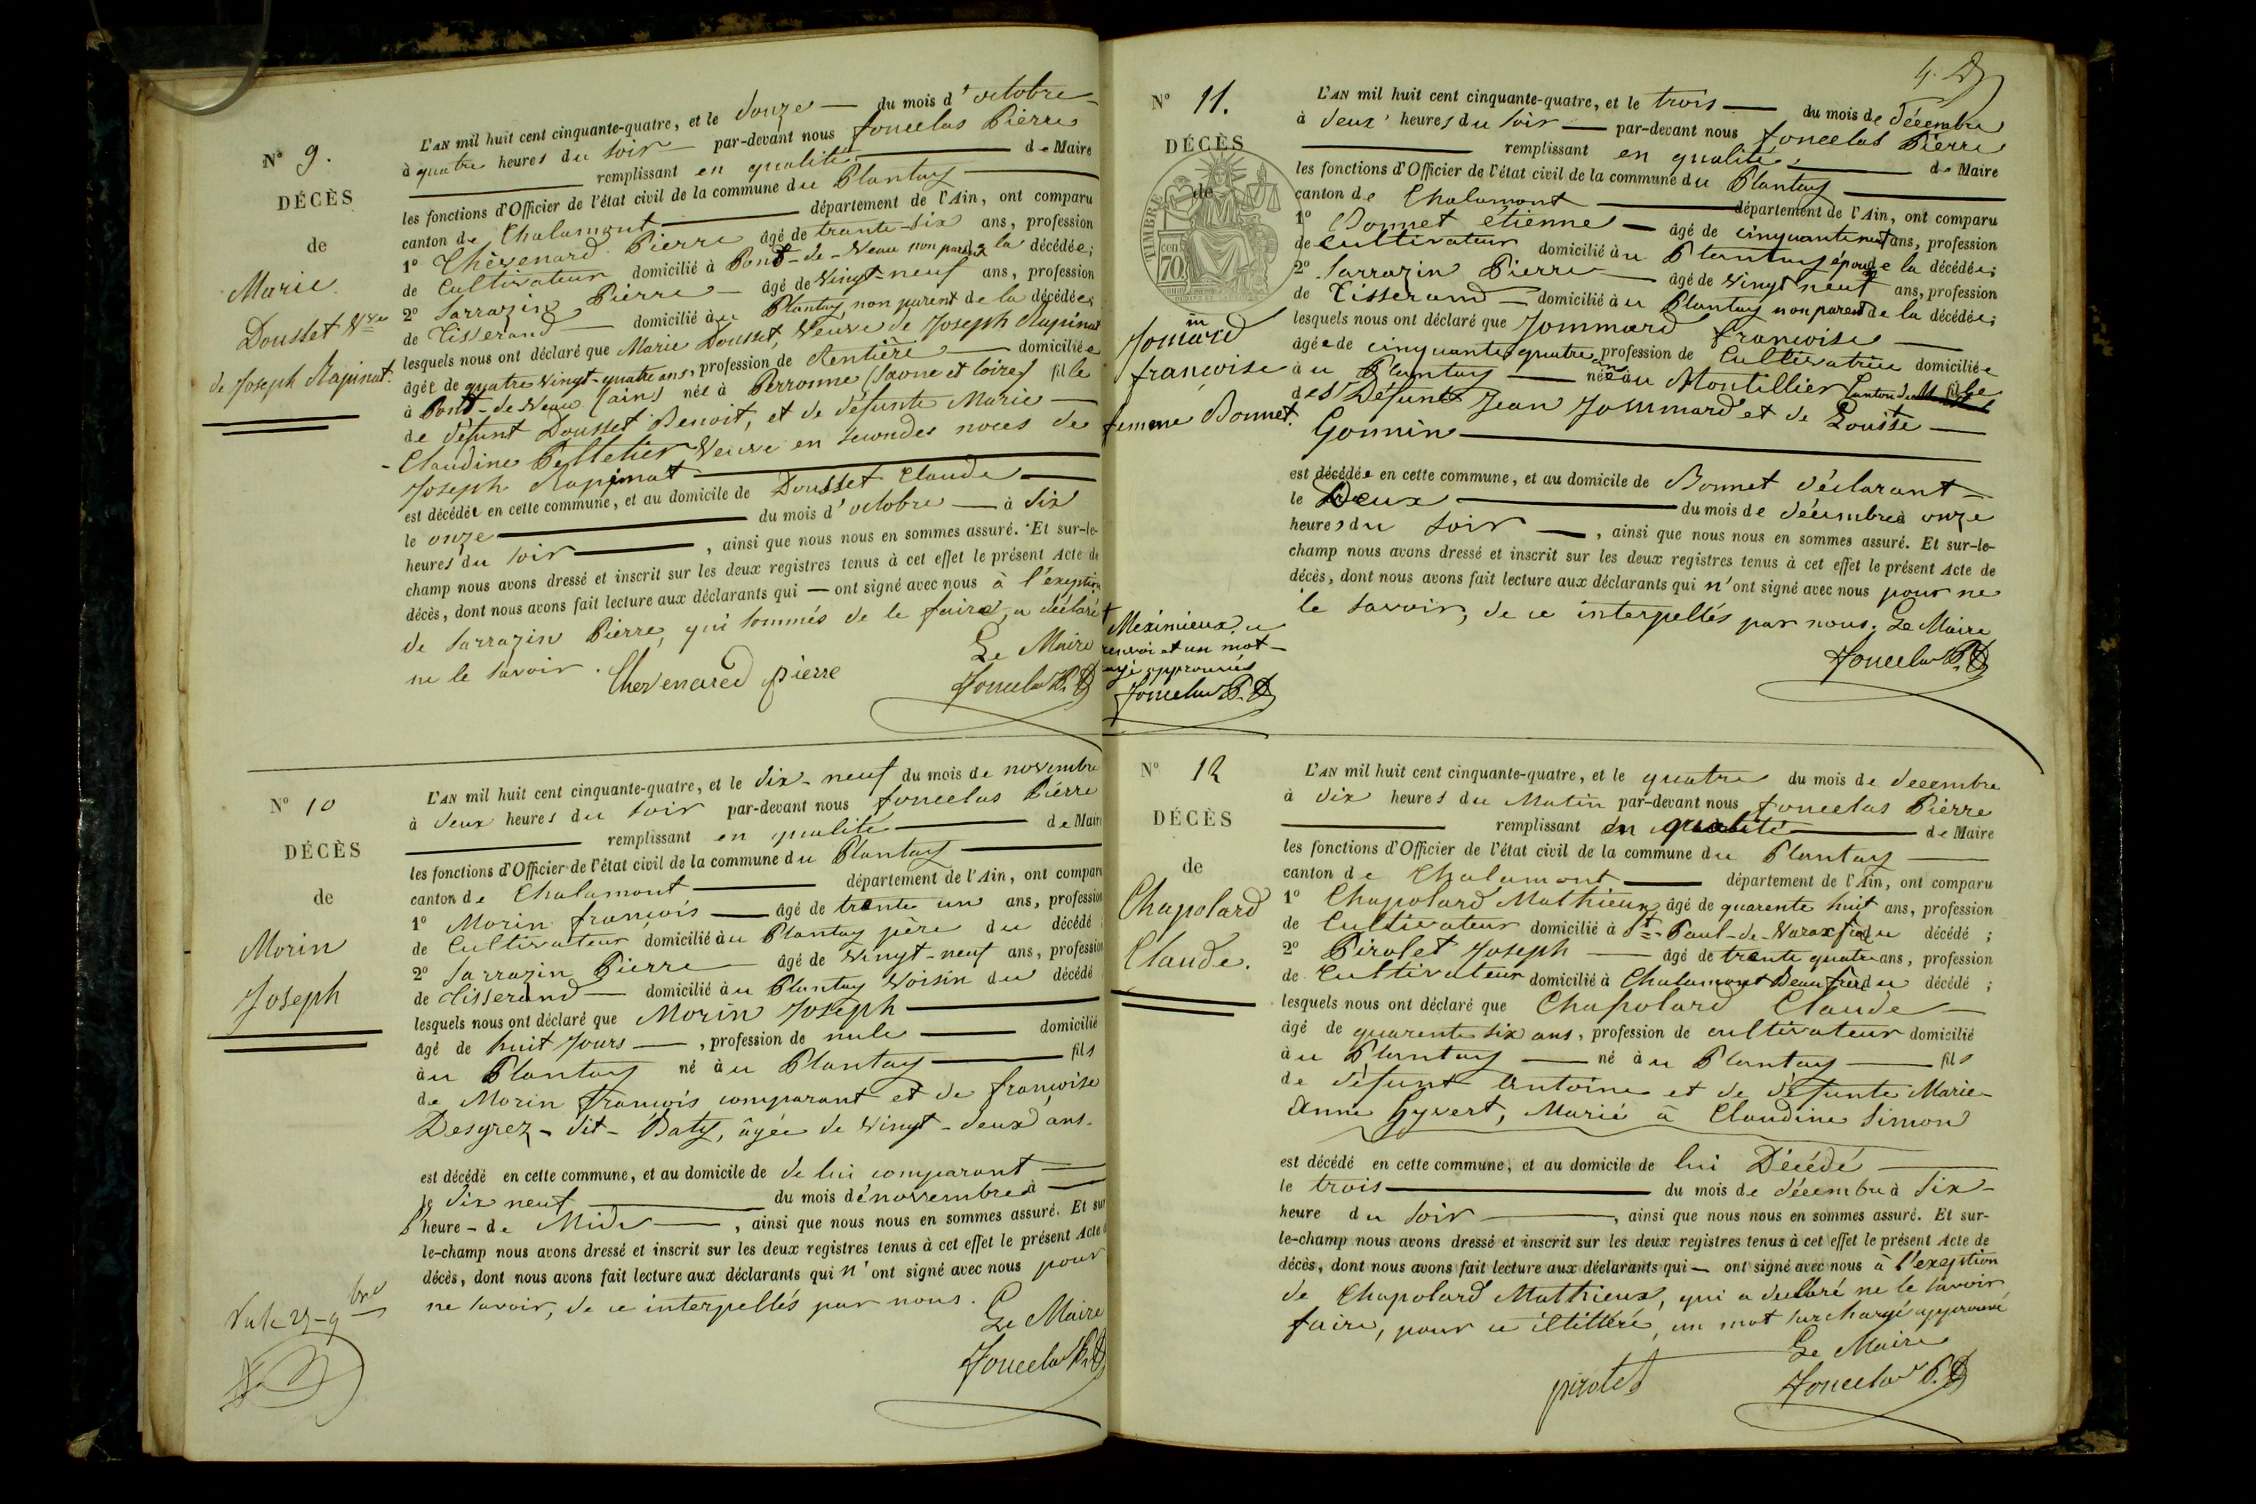 N° 9.
DÉCÈS
de
Marie
Dousset Vve
de Joseph Rapinat.
L'AN mil huit cent cinquante-quatre, et le douze du mois d'octobre
à quatre heures du soir par-devant nous Joncelas Pierre
remplissant en qualité de Maire
les fonctions d'Officier de l'état civil de la commune du Plantay
canton de Chalamont département de l'Ain, ont comparu
1° Thèvenard Pierre âgé de trante-six ans, profession
de Cultivateur domicilié à Pont-de-Veau non parent de la décédée;
2° Sarrazin Pierre âgé de Vingt-neuf ans, profession
de Tisserand domicilié au Plantay, non parent de la décédée;
lesquels nous ont déclaré que Marie Dousset, Veuve de Joseph Rapinat
âgée de quatre Vingt-quatre ans, profession de Rentière domiciliée
à Pont-de-Veau (ain) née à Perronne (Saone et loire) fille
de défunt Dousset Benoit, et de défunte Marie
Claudine Pelletier Veuve en secondes noces de
Joseph Rapinat
est décédée en cette commune, et au domicile de Dousset Claude
le onze du mois d'octobre à Six
heures du soir, ainsi que nous nous en sommes assuré. Et sur-le-
champ nous avons dressé et inscrit sur les deux registres tenus à cet effet le présent Acte de
décès, dont nous avons fait lecture aux déclarants qui — ont signé avec nous à l'exeption
de Sarrazin Pierre, qui sommés de le faire, a déclaré
ne le savoir.
Le Maire
Chevenared pierre
Joncelas P.
N° 10
DÉCÈS
de
Morin
Joseph
L'AN mil huit cent cinquante-quatre, et le dix-neuf du mois de novembre
à deux heures du soir par-devant nous Joncelas Pierre
remplissant en qualité de Maire
les fonctions d'Officier de l'état civil de la commune du Plantay
canton de Chalamont département de l'Ain, ont comparu
1° Morin françois âgé de trente un ans, profession
de Cultivateur domicilié au Plantay père du décédé;
2° Sarrazin Pierre âgé de Vingt-neuf ans, profession
de tisserand domicilié au Plantay Voisin du décédé
lesquels nous ont déclaré que Morin Joseph
âgé de huit Jours, profession de nule domicilié
au Plantay né au Plantay fils
de Morin françois comparant et de françoise
Desgrez-dit-Baty, âgée de Vingt-deux ans.
est décédé en cette commune, et au domicile de de lui comparant
le dix neuf du mois de novembre à
l'heure-de Midi, ainsi que nous nous en sommes assuré. Et sur
le-champ nous avons dressé et inscrit sur les deux registres tenus à cet effet le présent Acte de
décès, dont nous avons fait lecture aux déclarants qui n'ont signé avec nous pour
ne savoir, de ce interpellés par nous.
Le Maire
Joncelas P.
N° 11.
DÉCÈS
de
TIMBRE
70
Jommard
françoise
femme Bonnet.
L'AN mil huit cent cinquante-quatre, et le trois du mois de Décembre
à deux heures du soir par-devant nous Joncelas Pierre
remplissant en qualité, de Maire
les fonctions d'Officier de l'état civil de la commune du Plantay
canton de Chalamont département de l'Ain, ont comparu
1° Bonnet étienne âgé de cinquante neuf ans, profession
de Cultivateur domicilié au Plantay époux de la décédée;
2° Sarrazin Pierre âgé de Vingt neuf ans, profession
de Tisserand domicilié au Plantay non parent de la décédée;
lesquels nous ont déclaré que Jommard françoise
âgée de cinquante quatre ans, profession de Cultivatrice domiciliée
au Plantay née au Montillier Canton de fille
des Défunts Jean Jommard et de Louise
Gonnin
est décédée en cette commune, et au domicile de Bonnet déclarant
le Deux du mois de décembre à onze
heures du soir, ainsi que nous nous en sommes assuré. Et sur-le-
champ nous avons dressé et inscrit sur les deux registres tenus à cet effet le présent Acte de
décès, dont nous avons fait lecture aux déclarants qui n'ont signé avec nous pour ne
le savoir, de ce interpellés par nous. Le Maire
Joncelas P.
Meximieux. un
renvoi et un mot
rayé approuvés
Joncelas P.
N° 12
DÉCÈS
de
Chapolard
Claude.
L'AN mil huit cent cinquante-quatre, et le quatre du mois de decembre
à dix heures du Matin par-devant nous Joncelas Pierre
remplissant en qualité de Maire
les fonctions d'Officier de l'état civil de la commune du Plantay
canton de Chalamont département de l'Ain, ont comparu
1° Chapolard Mathieux âgé de quarente huit ans, profession
de Cultivateur domicilié à St-Paul-de-Varax frère du décédé;
2° Pirolet Joseph âgé de trente quatre ans, profession
de Cultivateur domicilié à Chalamont Beau frère du décédé;
lesquels nous ont déclaré que Chapolard Claude
âgé de quarente six ans, profession de cultivateur domicilié
au Plantay né au Plantay fils
de défunt Antoine et de défunte Marie-
Anne Gyvert, Marié à Claudine Simon
est décédé en cette commune, et au domicile de lui Décédé
le trois du mois de décembre à Six
heure du soir, ainsi que nous nous en sommes assuré. Et sur-
le-champ nous avons dressé et inscrit sur les deux registres tenus à cet effet le présent Acte de
décès, dont nous avons fait lecture aux déclarants qui — ont signé avec nous à l'exeption
de Chapolard Mathieux, qui a declaré ne le savoir
faire, pour ce illittéré, un mot surchargé approuvé
Le Maire
pirolet
Joncelas P.